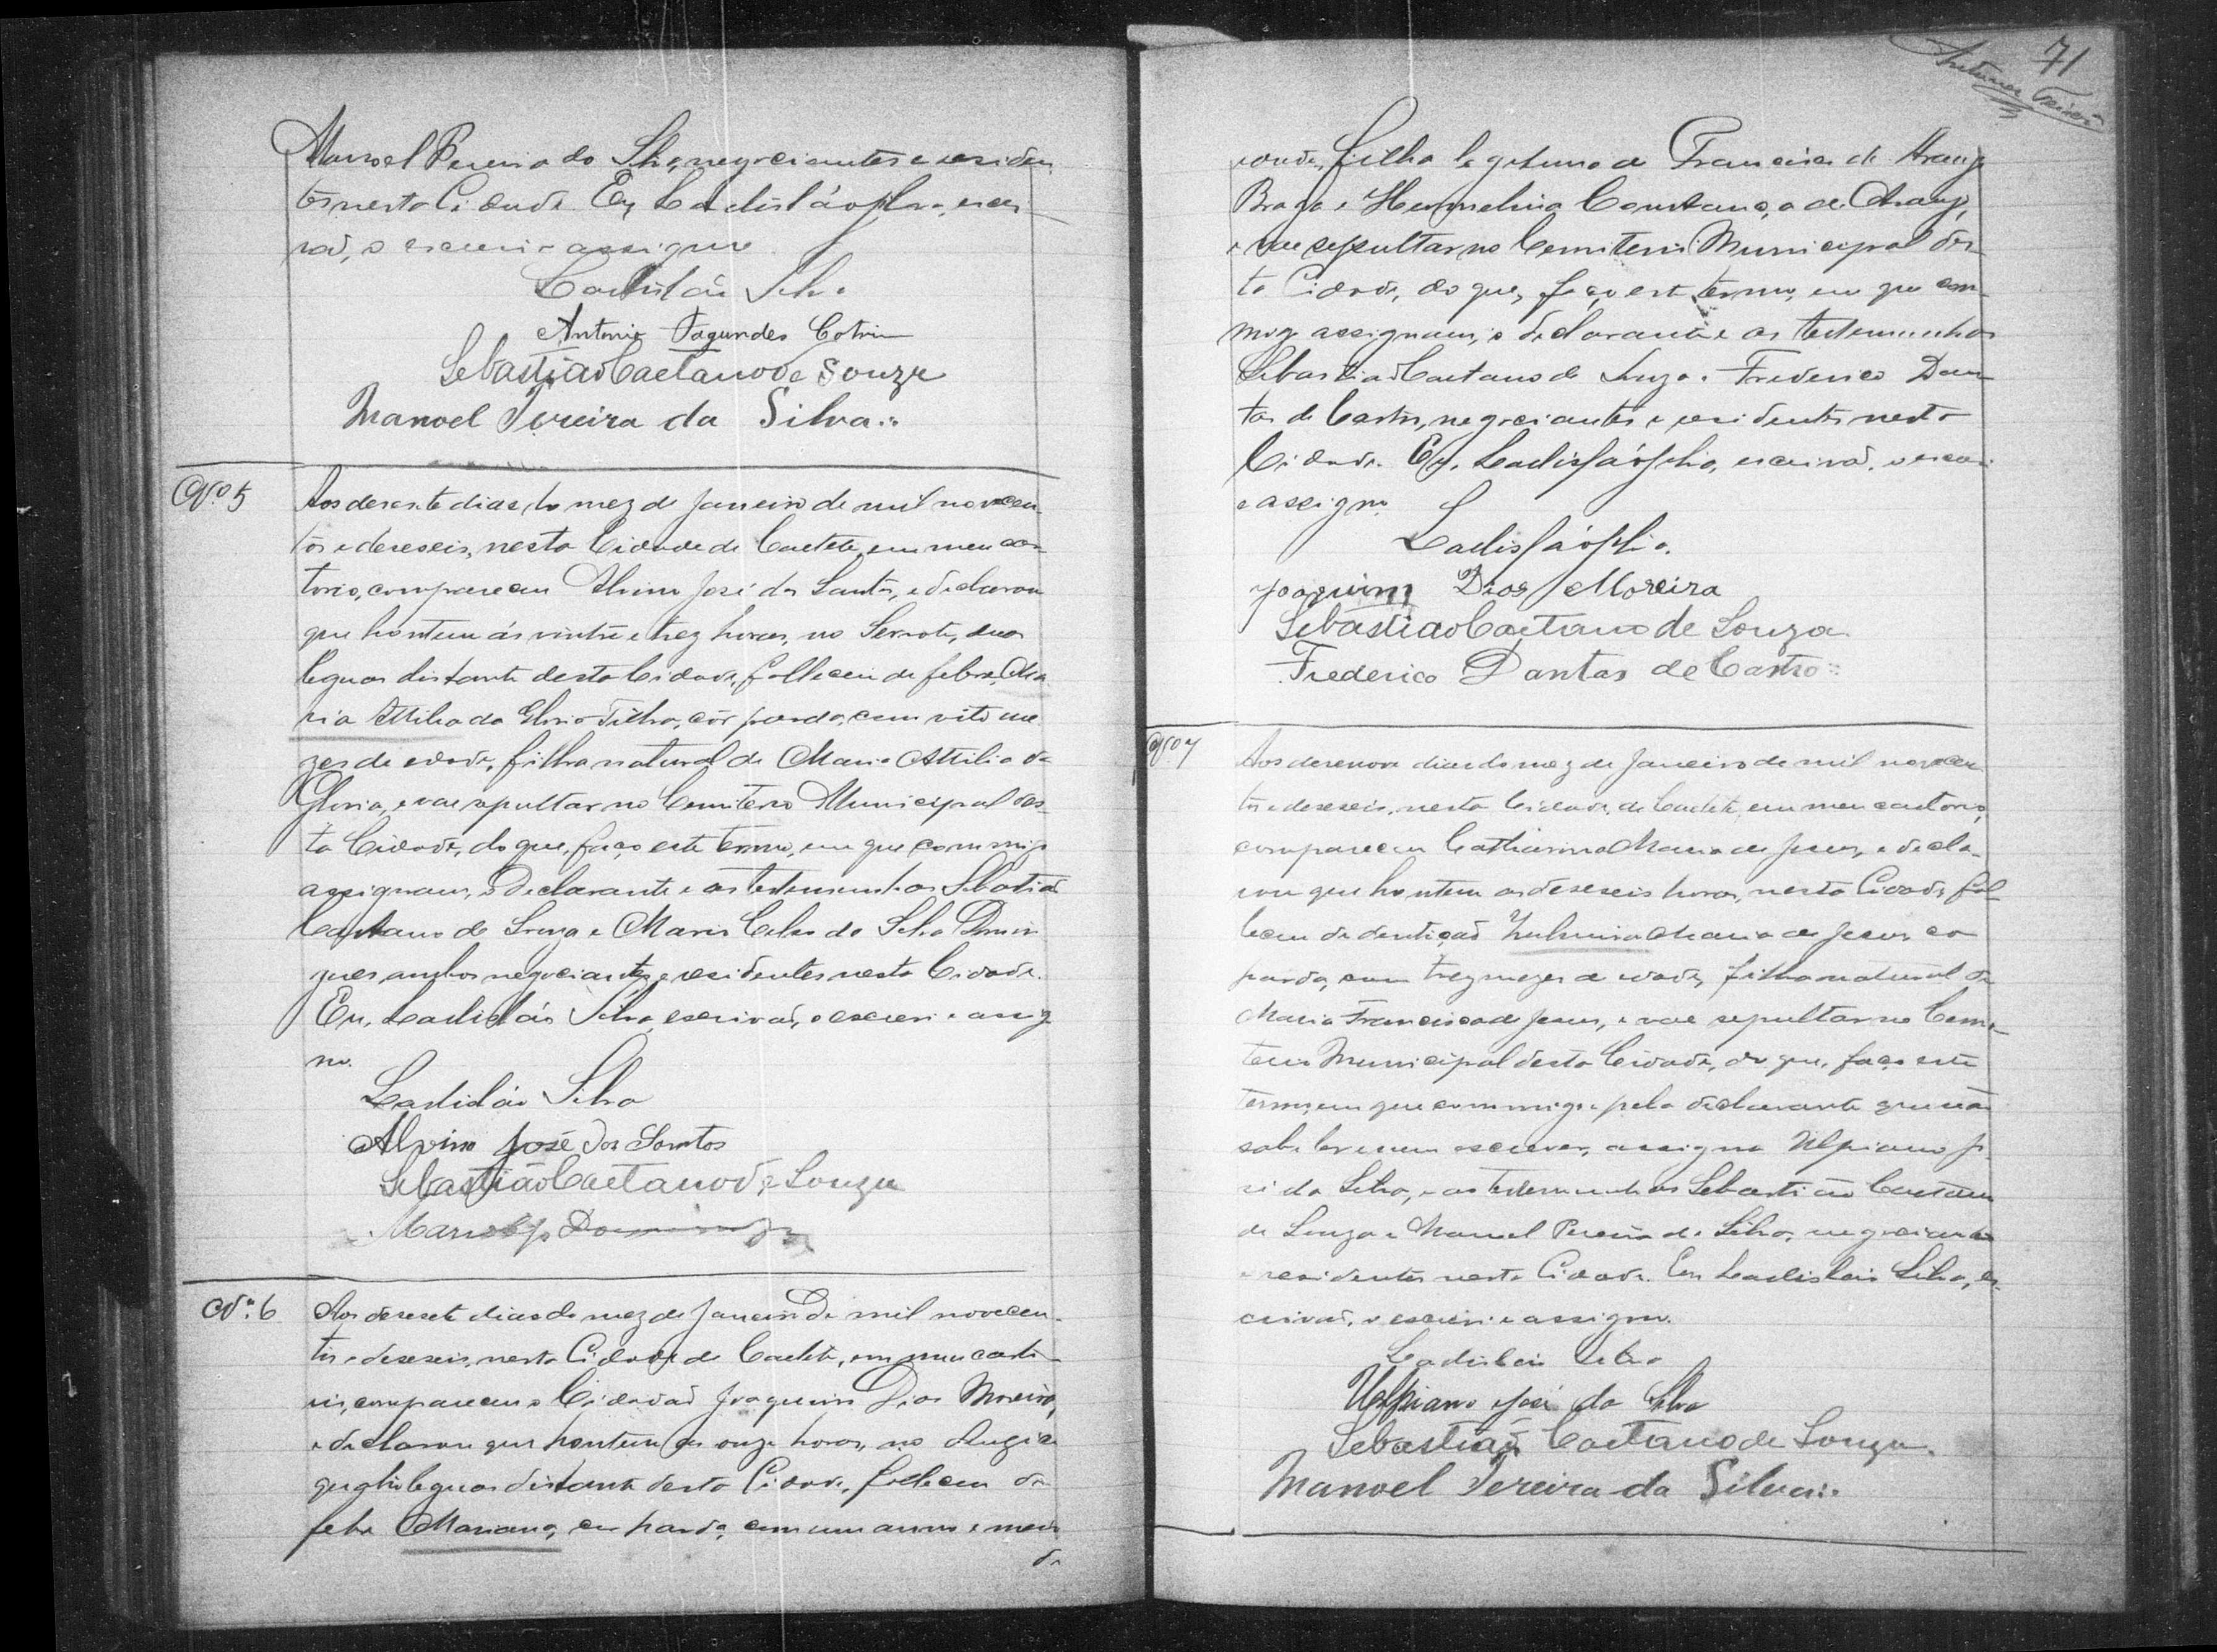 Manoel Pereira da Silva, negociantes e residen
tes nesta Cidade. Eu, Ladisláo Silva, escri
vaõ, o escrevi e assigno.
Ladisláo Silva
Antonio Fagundes Cotrim
Sebastiaõ Caetano de Souza
Manoel Pereira da Silva
Nº 5
Aos desesete dias do mez de Janeiro de mil novecen
tos e deseseis, nesta Cidade de Caeteté, em meu car
torio, compareceu Alvino José dos Santos, e declarou
que hontem ás vinte e trez horas, no Serrote, duas
leguas distante desta Cidade, falleceu de febre, Ma
ria Attilia da Gloria Filha, côr parda, com oito me
zes de edade, filha natural de Maria Attilia da
Gloria, e vae sepultar no Cemiterio Municipal des
ta Cidade, do que, faço este termo, em que commigo
assignam, o declarante e as testemunhas Sebastiaõ
Caetano de Souza e Mario Celso da Silva Domin
gues ambos negociantes e residentes nesta Cidade.
Eu, Ladisláo Silva, escrivaõ, o escrevi e assig
no.
Ladisláo Silva
Alvino José dos Santos
Sebastiaõ Caetano de Souza
Nº 6
Aos desesete dias do mez de Janeiro de mil novecen
tos e deseseis, nesta Cidade de Caeteté, em meu carto
rio, compareceu o Cidadaõ Joaquim Dias Moreira,
e declarou que hontem as onze horas, no
quatro leguas distante desta Cidade, falleceu de
febre Mariana, cor parda, com um anno e meio
de
71
edade, filha legitima de Francisco de Araujo
Braga e Hermelina Constança de Araujo,
e vae sepultar no Cemiterio Municipal des
ta Cidade, do que, faço este termo, em que com
migo assignam, o declarante e as testemunhas
Sebastiaõ Caetano de Souza e Frederico Dan
tas de Castro, negociantes e residentes nesta
Cidade. Eu, Ladisláo Silva, escrivaõ, o escrevi
e assigno.
Ladisláo Silva
Joaquim Dias Moreira
Sebastiaõ Caetano de Souza
Frederico Dantas de Castro
Nº 7
Aos desenove dias do mez de Janeiro de mil novecen
tos e deseseis, nesta Cidade, de Caeteté, em meu cartorio,
compareceu Catharina Maria de Jesus, e decla
rou que hontem as deseseis horas, nesta Cidade, fal
leceu de dentiçaõ Maria de Jesus, cor
parda, com trez mezes de edade, filha natural de
Maria Francisca de Jesus, e vae sepultar no Cemi
terio Municipal desta Cidade, do que, faço este
termo, em que commigo e pela declarante que não
sabe ler e nem escrever, assigna Ulpiano Jo
sé da Silva, e as testemunhas Sebastião Caetano
de Souza e Manoel Pereira da Silva, negociantes
e residentes nesta Cidade. Eu Ladisláo Silva, es
crivaõ, o escrevi e assigno.
Ladisláo Silva
Ulpiano José da Silva
Sebastiaõ Caetano de Souza
Manoel Pereira da Silva